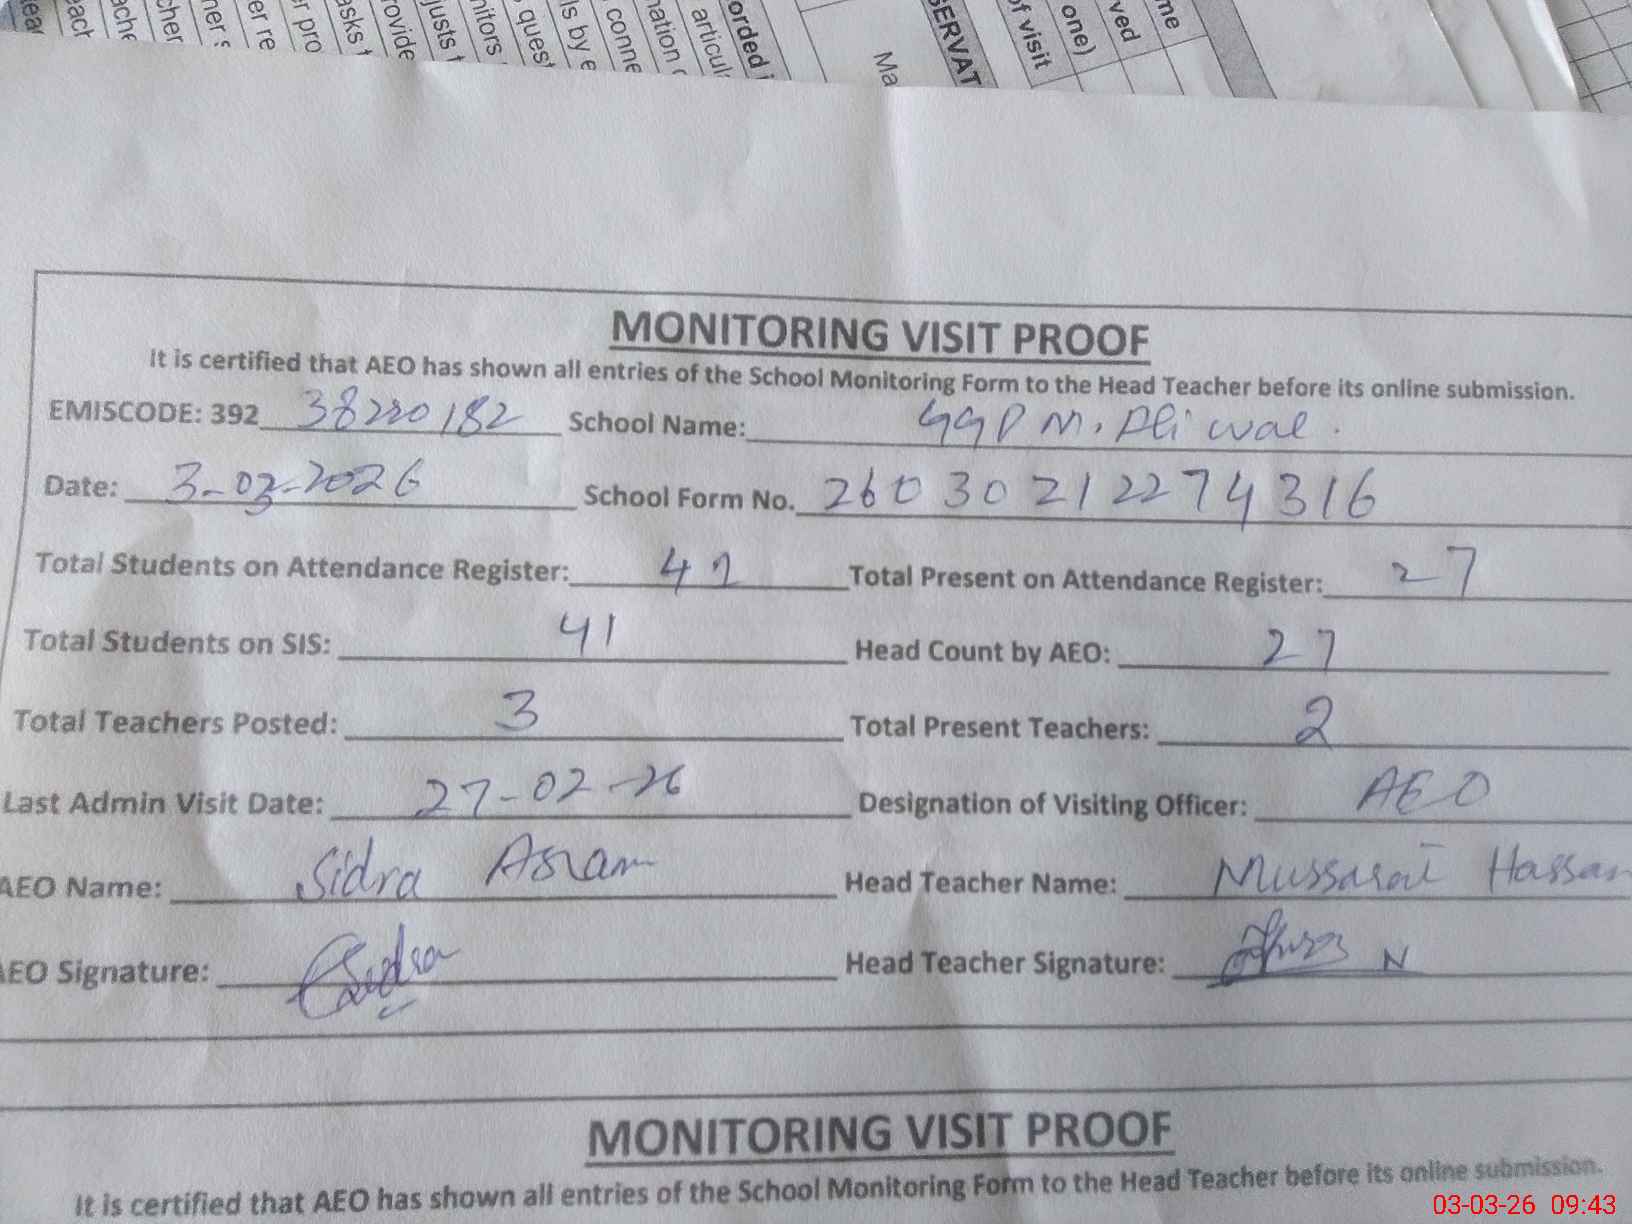 orded
SERVAT
Ma
of visit
one)
ved
me
MONITORING VISIT PROOF
It is certified that AEO has shown all entries of the School Monitoring Form to the Head Teacher before its online submission.
EMISCODE: 392 38220182 School Name: GGPS M. Ali wal.
Date: 3-03-2026 School Form No. 260302122274316
Total Students on Attendance Register: 42 Total Present on Attendance Register: 27
Total Students on SIS: 41 Head Count by AEO: 27
Total Teachers Posted: 3 Total Present Teachers: 2
Last Admin Visit Date: 27-02-26 Designation of Visiting Officer: AEO
AEO Name: Sidra Head Teacher Name: Mussarat Hassan
AEO Signature: Sidra Head Teacher Signature:
MONITORING VISIT PROOF
It is certified that AEO has shown all entries of the School Monitoring Form to the Head Teacher before its online submission.
03-03-26 09:43